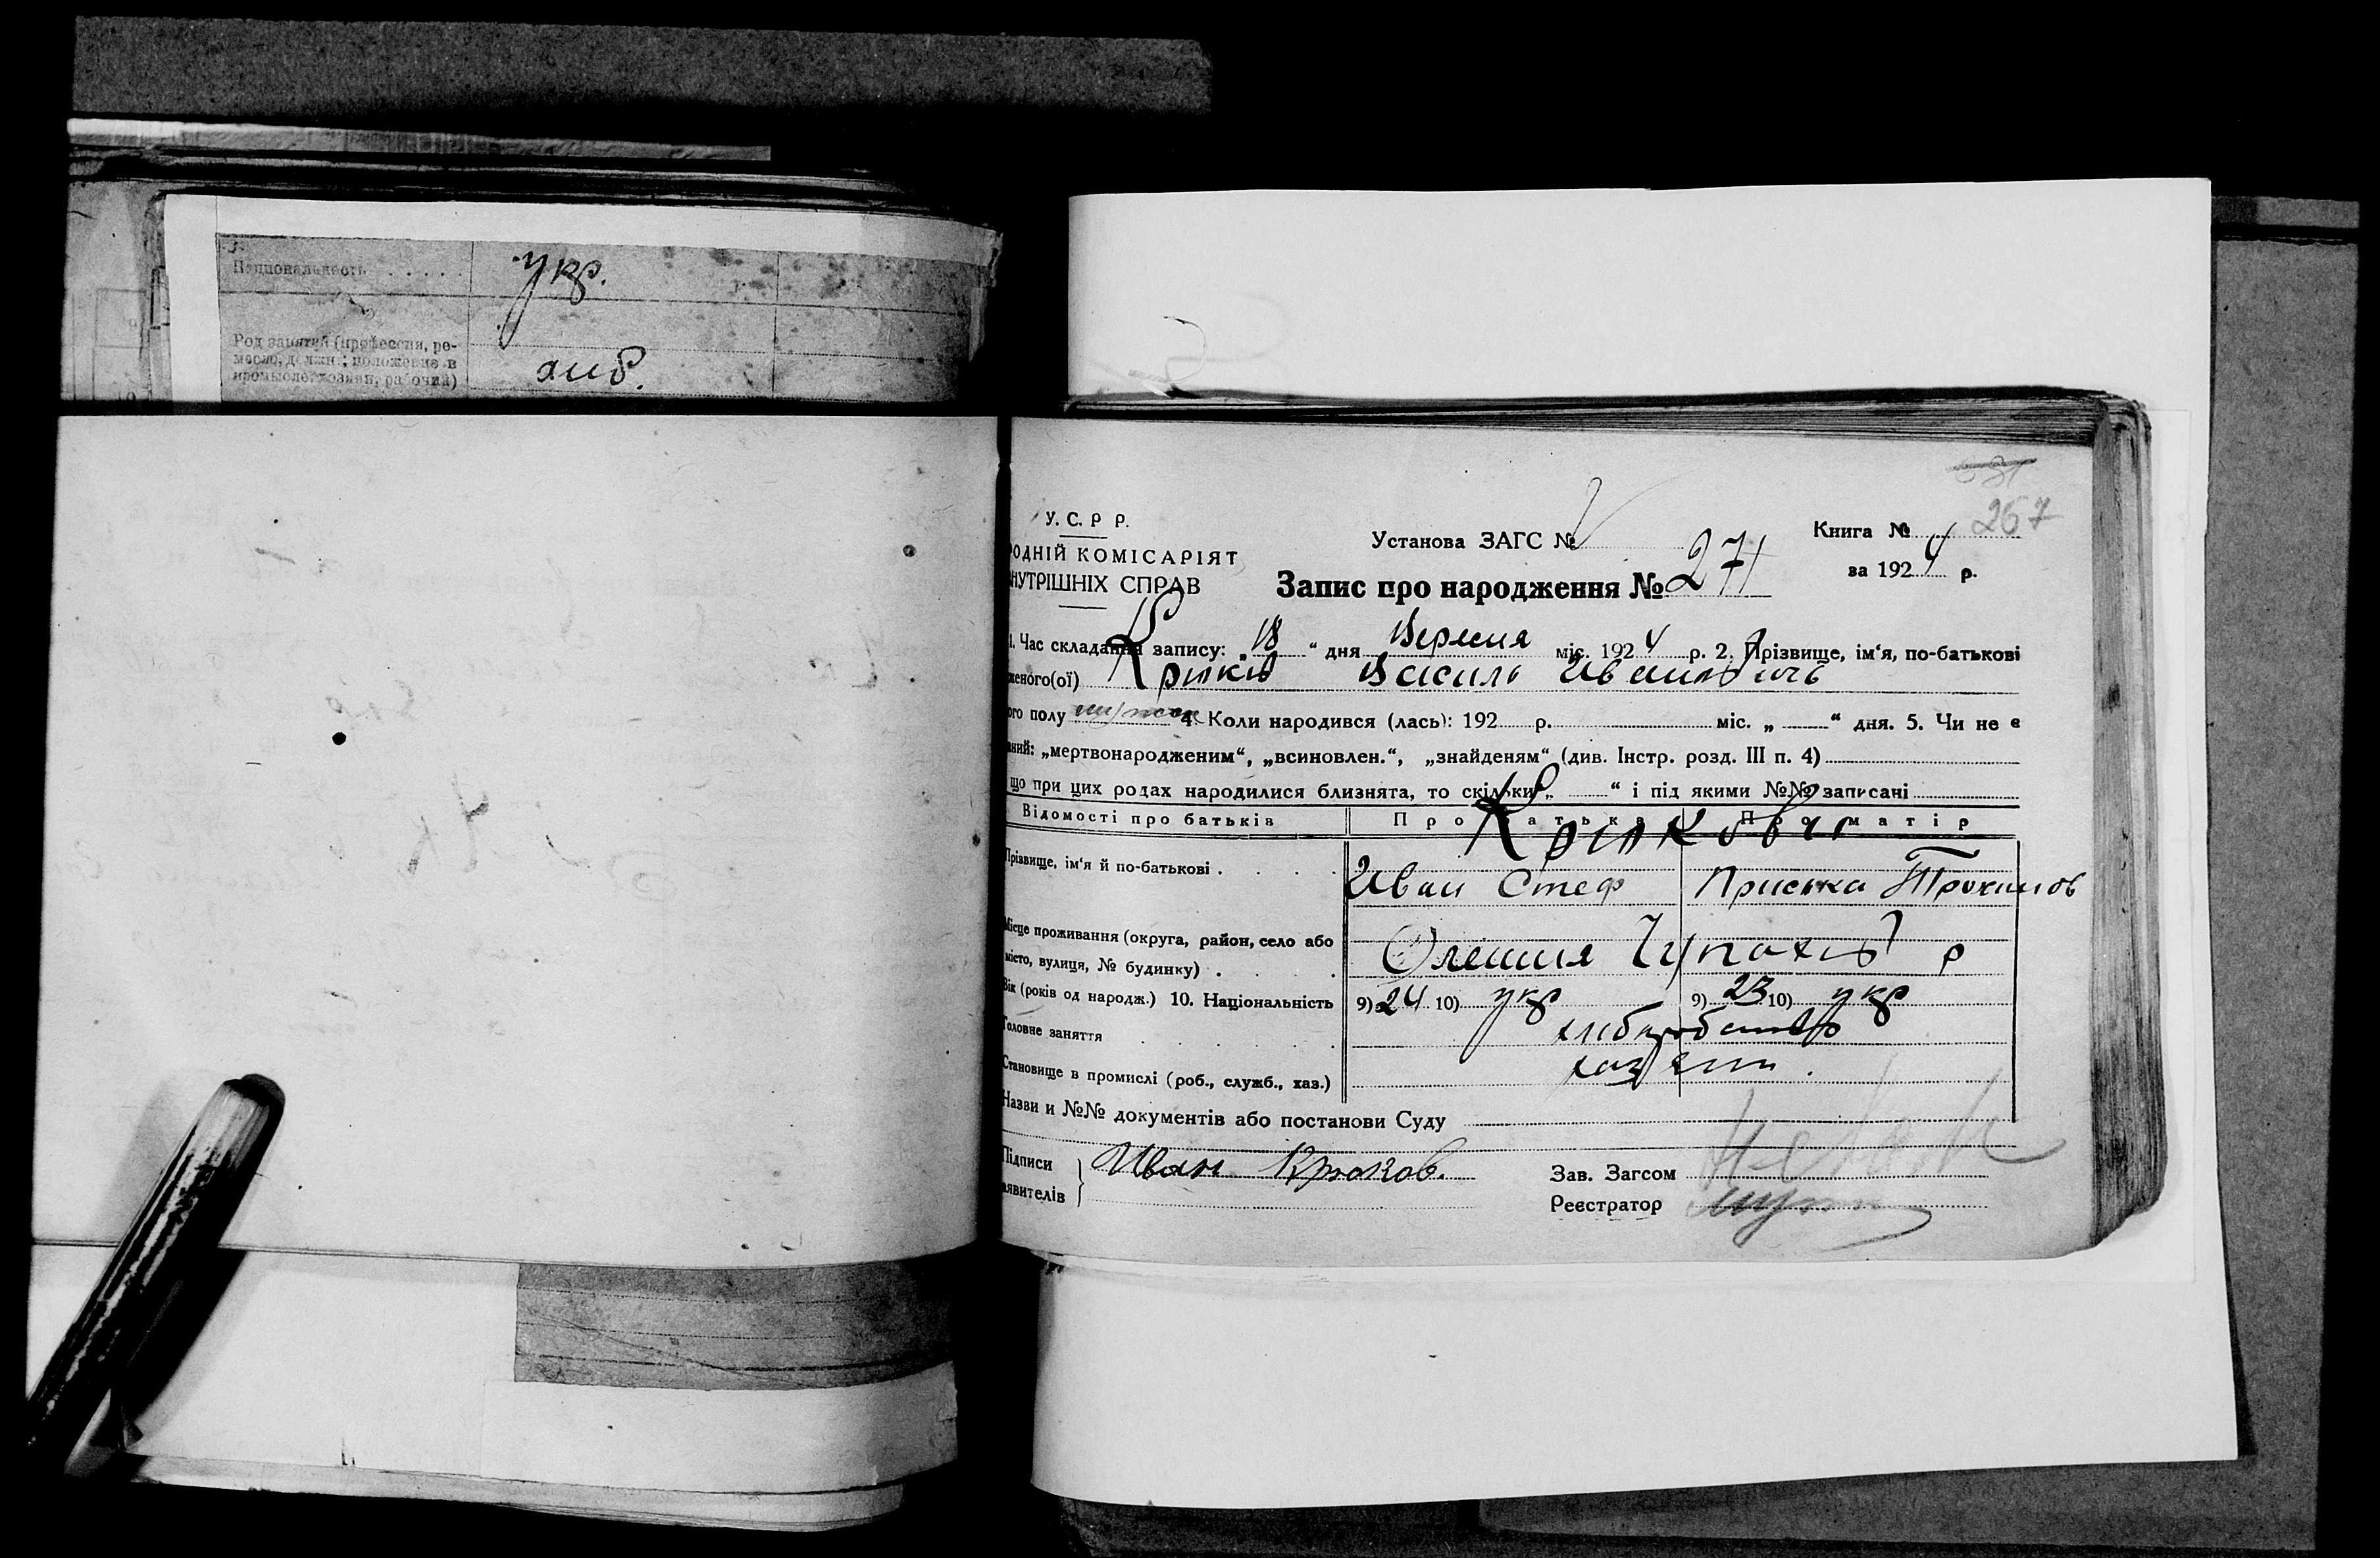 Национальность . . . . . укр.
Род занятий (профессия, ре-
месло, должн.; положение в
промысле: хозяин, рабочий) хліб.
У. С. Р Р.
ОДНІЙ КОМІСАРІЯТ
НУТРІШНІХ СПРАВ
Установа ЗАГС №
Книга №
267
за 1924 р.
Запис про народження № 271
1. Час складання запису: „18“ дня Вересня міс. 1924 р. 2. Прізвище, ім‘я, по-батькові
женого(ої) Крюків Василь Иванович
ого полу мужеск 4. Коли народився (лась): 192 р. міс. „ “ дня. 5. Чи не є
аний: „мертвонародженим“, „всиновлен.“, „знайденям“ (див. Інстр. розд. III п. 4)
що при цих родах народилися близнята, то скільки „ “ і під якими №№ записані
Відомості про батьків Про батька Про матір
Крюкови
Прізвище, ім‘я й по-батькові . Иван Стеф Приська Трохимов
Місце проживання (округа, район, село або
місто, вулиця, № будинку) . Олешня Чупахів р
Вік (років од народж.) 10. Національність 9) 24 10) укр 9) 23 10) укр
Головне заняття хліборобство
Становище в промислі (роб., служб., хаз.)
Назви и №№ документів або постанови Суду
Підписи Иван Крюков.
аявителів
Зав. Загсом
Реєстратор